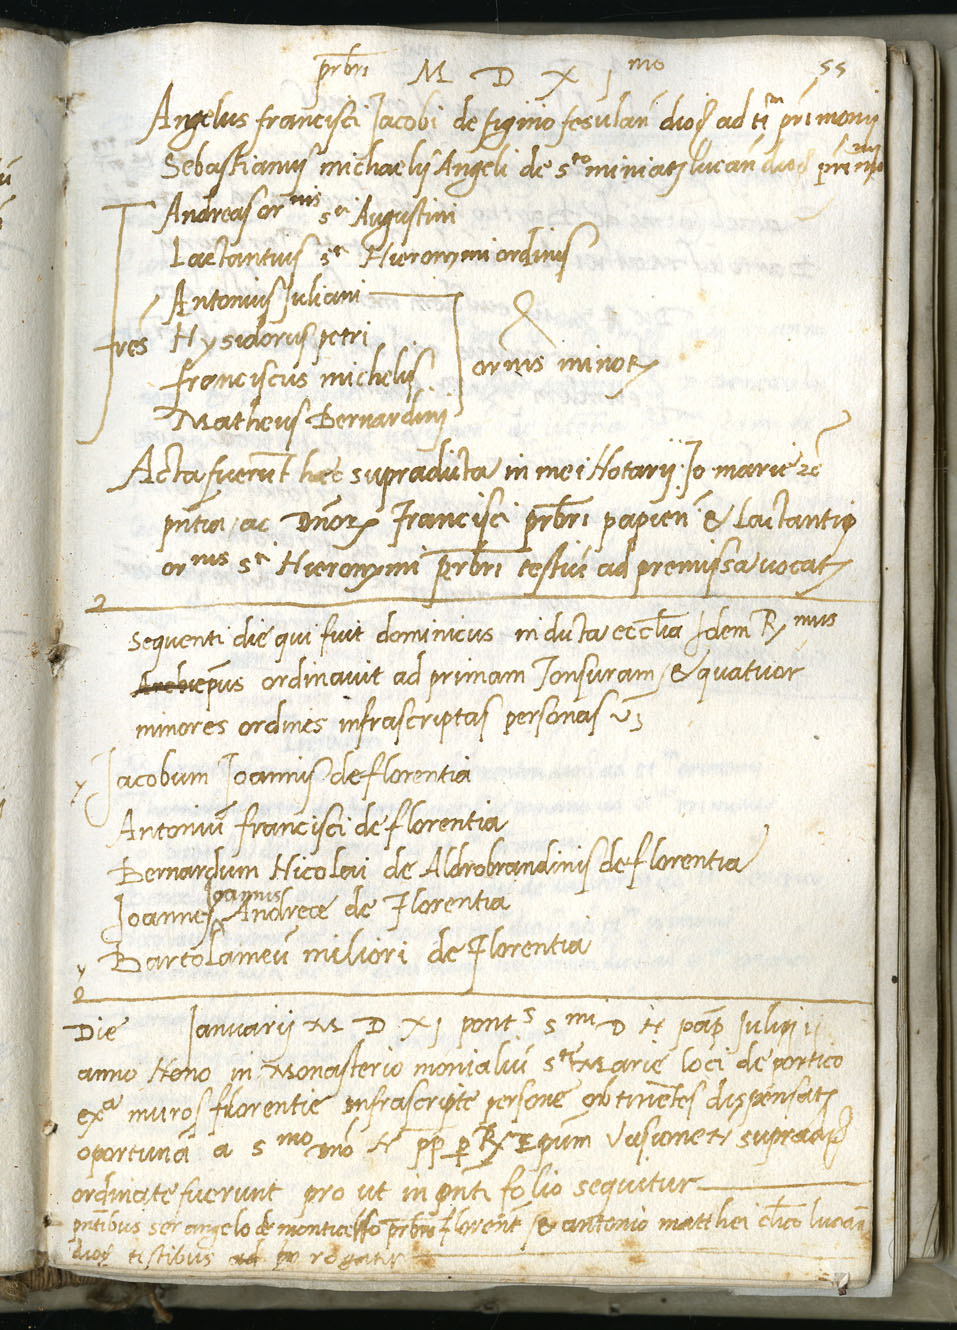 prbri M D X I mo 55
Angelus francisci Jacobi de figino fesulan dioc ad ti pri monij
Sebastianus michaelis Angeli de sto miniato lucan dioc
Andreas ornis sti Augustini
Lactantius sti Hieronymi ordinis
Antonius Juliani
fres Hysidorus petri
franciscus michelis
ornis minor
Matheus Bernardini
Acta fuerut hec supradicta in mei Notarij Jo marie
pntia ac Dnor Francisci prbri papien & Lactantio
ornis sti Hieronymi prbri testiu ad premissa vocat
Sequenti die qui fuit dominicus in dicta ecclia Idem R mus
Archiepus ordinavit ad primam Tonsuram & quatuor
minores ordines infrascriptas personas vz
Jacobum Joannis de florentia
Antoniu francisci de florentia
Bernardum Nicolai de Aldrobrandinis de florentia
Joannes Joannis Andree de Florentia
Bartolameu miliori de Florentia
Die Januarij M D XI pont s s mi D N pap Julij ij
anno Nono in Monasterio monialiu ste Marie loci de portico
exa muros florentie infrascripte persone obtinetes dispensat
oportuna a s mo dno N pp p R Epum Vasionen supradic
ordinate fuerunt pro ut in pnti folio sequitur
pntibus ser angelo de monticello prbro florent & antonio matthei clico lucan
dioc testibus rogatis